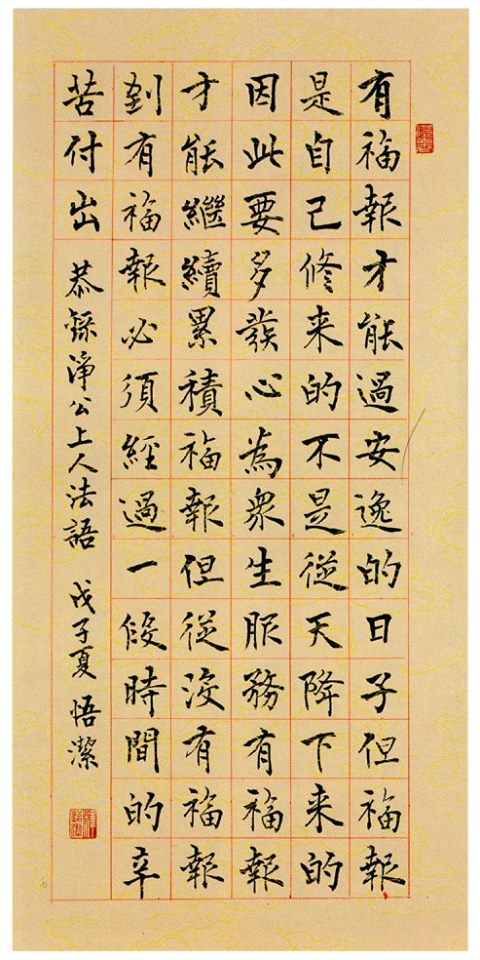 有福報才能過安逸的日子但福報
是自己修来的不是從天降下来的
因此要多發心為衆生服務有福報
才能繼續累積福報但從沒有福報
到有福報必須經過一段時間的辛
苦付出
恭錄淨公上人法語 戊子夏 悟潔